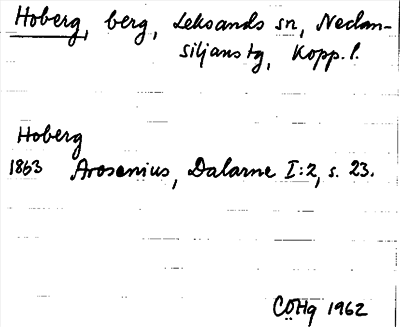 Hoberg, berg, Leksands sn, Nedan-
siljans tg, Kopp. l.
Hoberg
1863 Arosenius, Dalarne I:2, s. 23.
CÖHg 1962